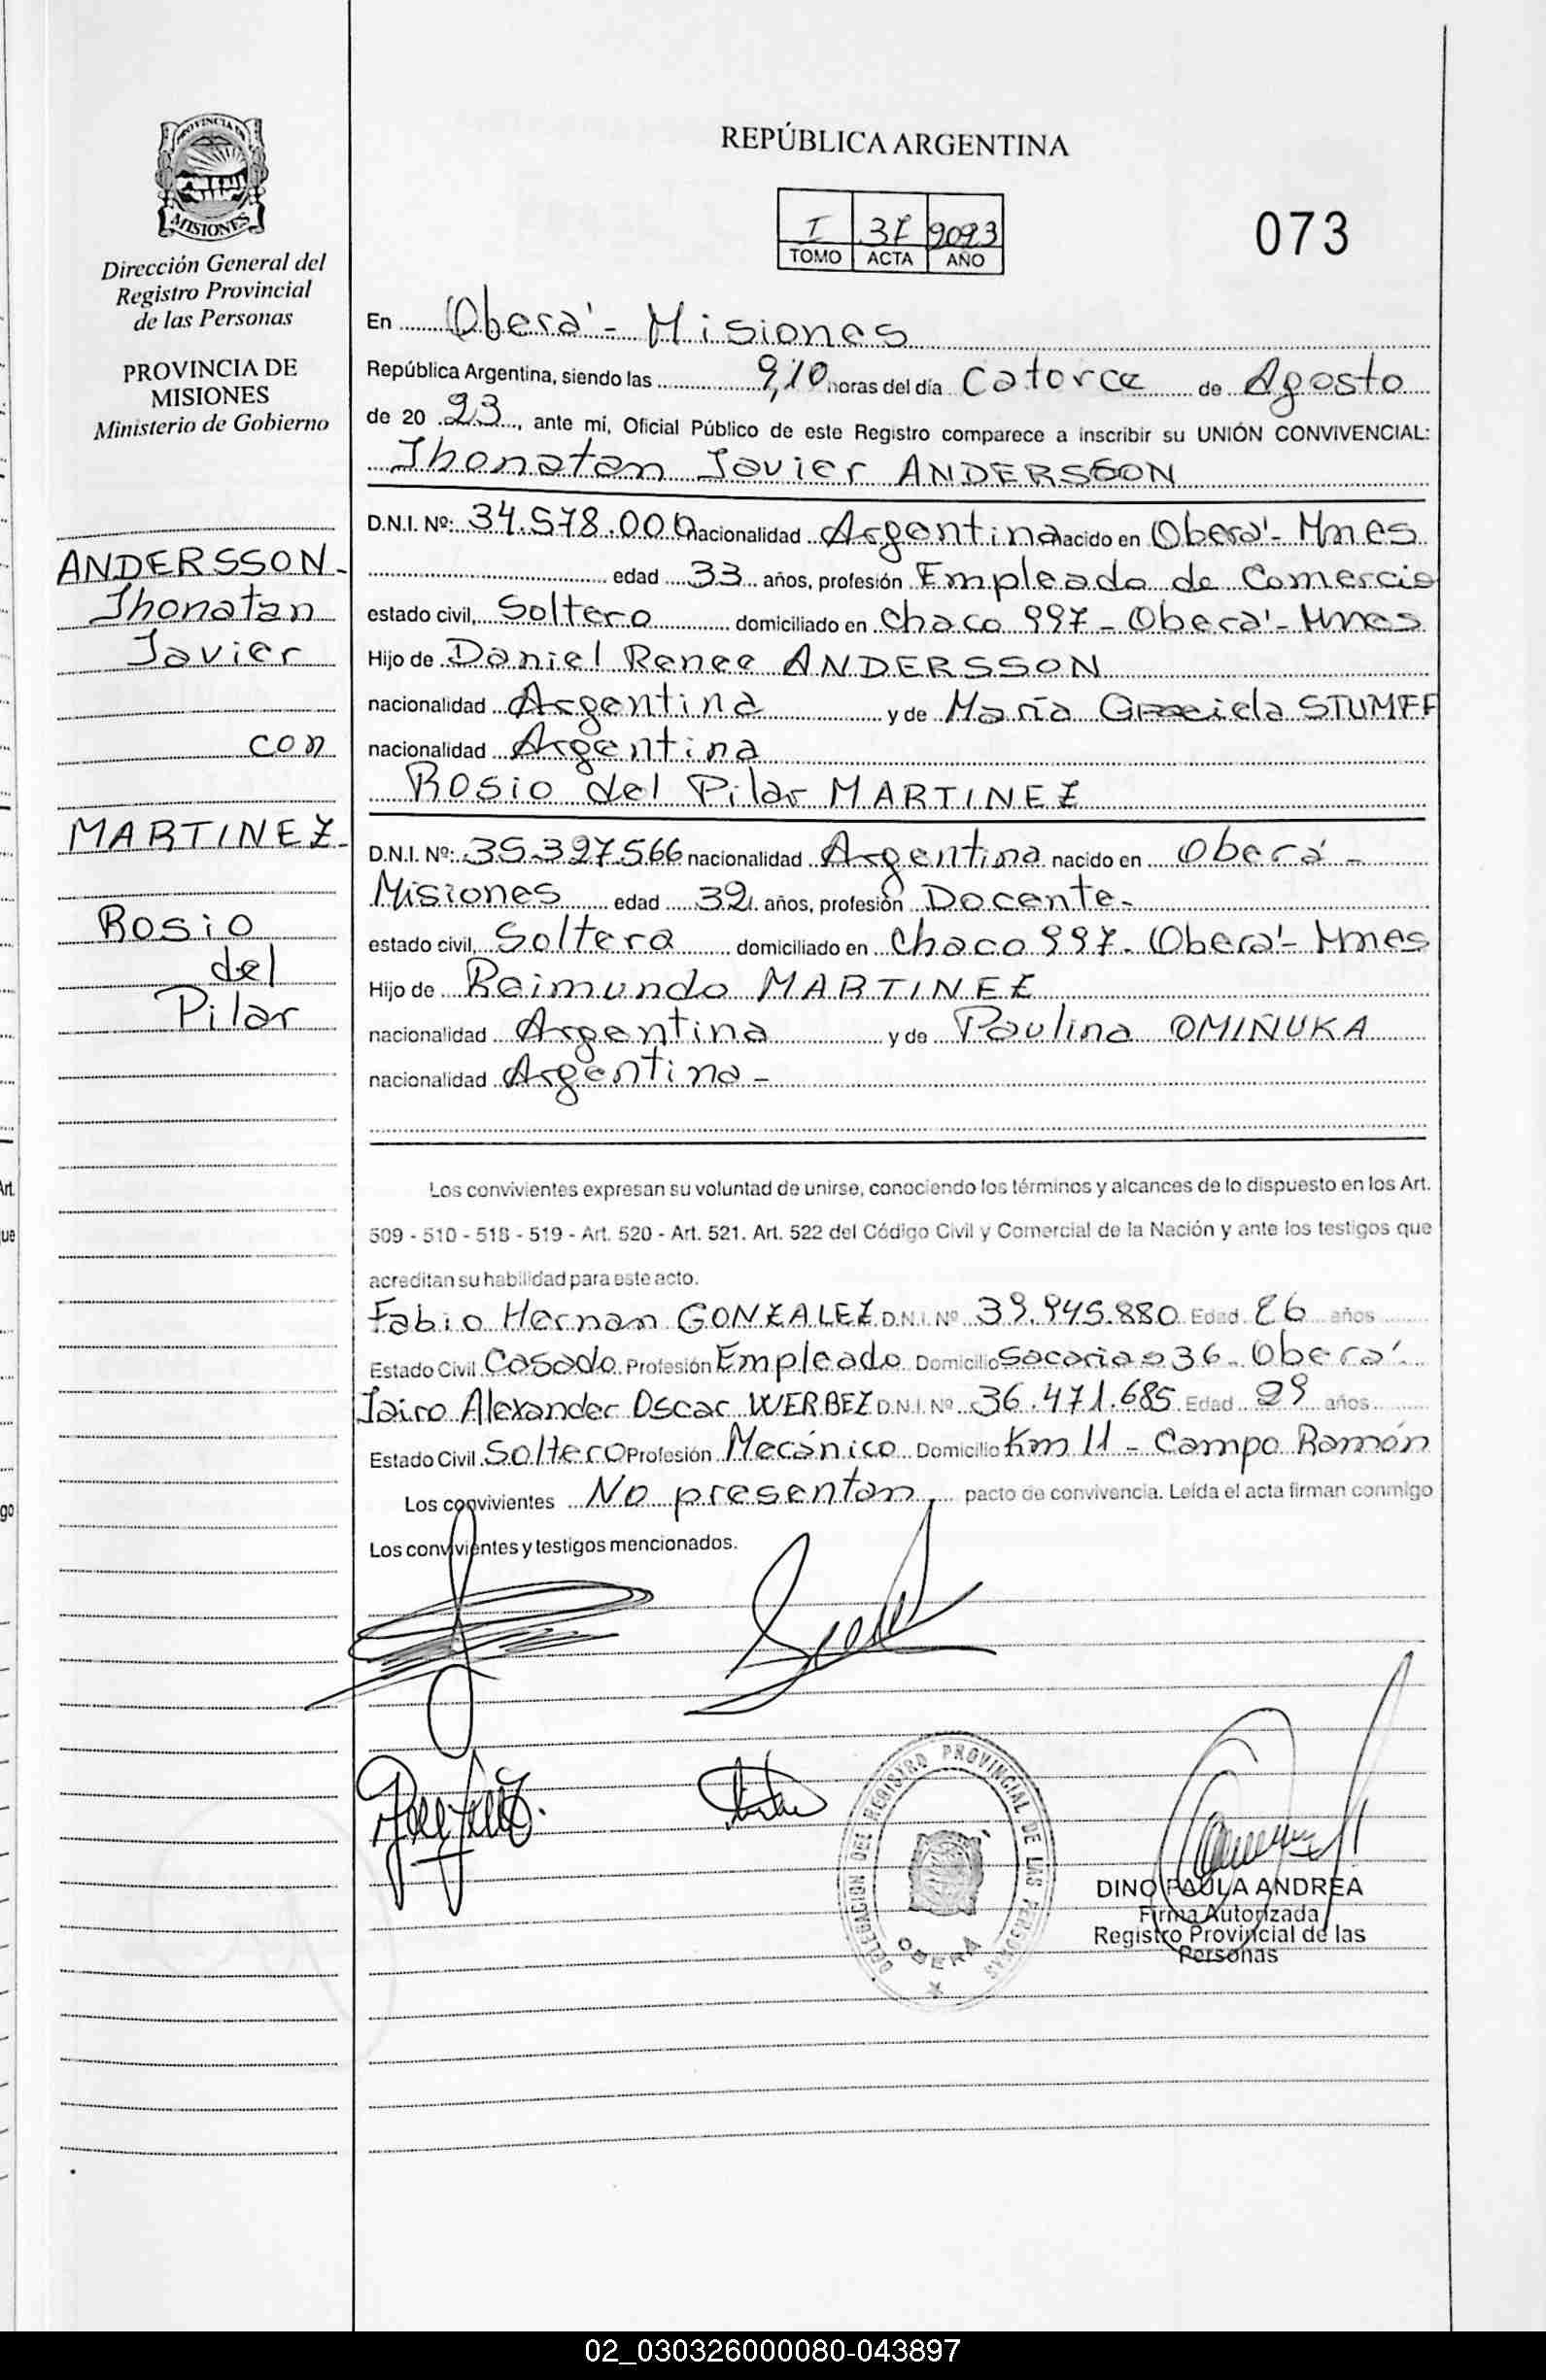 PROVINCIA DE
MISIONES
Dirección General del
Registro Provincial
de las Personas
PROVINCIA DE
MISIONES
Ministerio de Gobierno
ANDERSSON-
Jhonatan
Javier
con
MARTINEZ-
Rosio
del
Pilar
REPÚBLICA ARGENTINA
I 37 2023
TOMO ACTA AÑO
073
En Oberá - Misiones
República Argentina, siendo las 9,10 horas del día Catorce de Agosto
de 20 23, ante mí, Oficial Público de este Registro comparece a inscribir su UNIÓN CONVIVENCIAL:
Jhonatan Javier ANDERSSON
D.N.I. Nº: 34.578.000 nacionalidad Argentina nacido en Oberá - Mnes
edad 33 años, profesión Empleado de Comercio
estado civil, Soltero domiciliado en Chaco 997 - Oberá - Mnes
Hijo de Daniel Renee ANDERSSON
nacionalidad Argentina y de María Graciela STUMPF
nacionalidad Argentina
Rosio del Pilar MARTINEZ
D.N.I. Nº: 35.327.566 nacionalidad Argentina nacido en Oberá -
Misiones edad 32 años, profesión Docente -
estado civil, Soltera domiciliado en Chaco 997 - Oberá - Mnes
Hijo de Raimundo MARTINEZ
nacionalidad Argentina y de Paulina OMIÑUKA
nacionalidad Argentina -
Los convivientes expresan su voluntad de unirse, conociendo los términos y alcances de lo dispuesto en los Art.
509 - 510 - 518 - 519 - Art. 520 - Art. 521. Art. 522 del Código Civil y Comercial de la Nación y ante los testigos que
acreditan su habilidad para este acto.
Fabio Hernan GONZALEZ D.N.I. Nº 39.945.880 Edad 26 años
Estado Civil Casado Profesión Empleado Domicilio 36 - Oberá
Jairo Alexander Oscar WERBEZ D.N.I. Nº 36.471.685 Edad 29 años
Estado Civil Soltero Profesión Mecánico Domicilio Km 11 - Campo Ramón
Los convivientes No presentan pacto de convivencia. Leída el acta firman conmigo
Los convivientes y testigos mencionados.
DELEGACION DEL REGISTRO PROVINCIAL DE LAS PERSONAS
OBERA
DINO PAULA ANDREA
Firma Autorizada
Registro Provincial de las
Personas
02_030326000080-043897